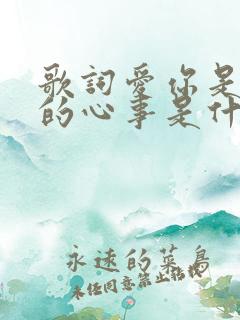 歌詞愛你是
的心事是什
永遠的菜鳥
未经同意禁止转载